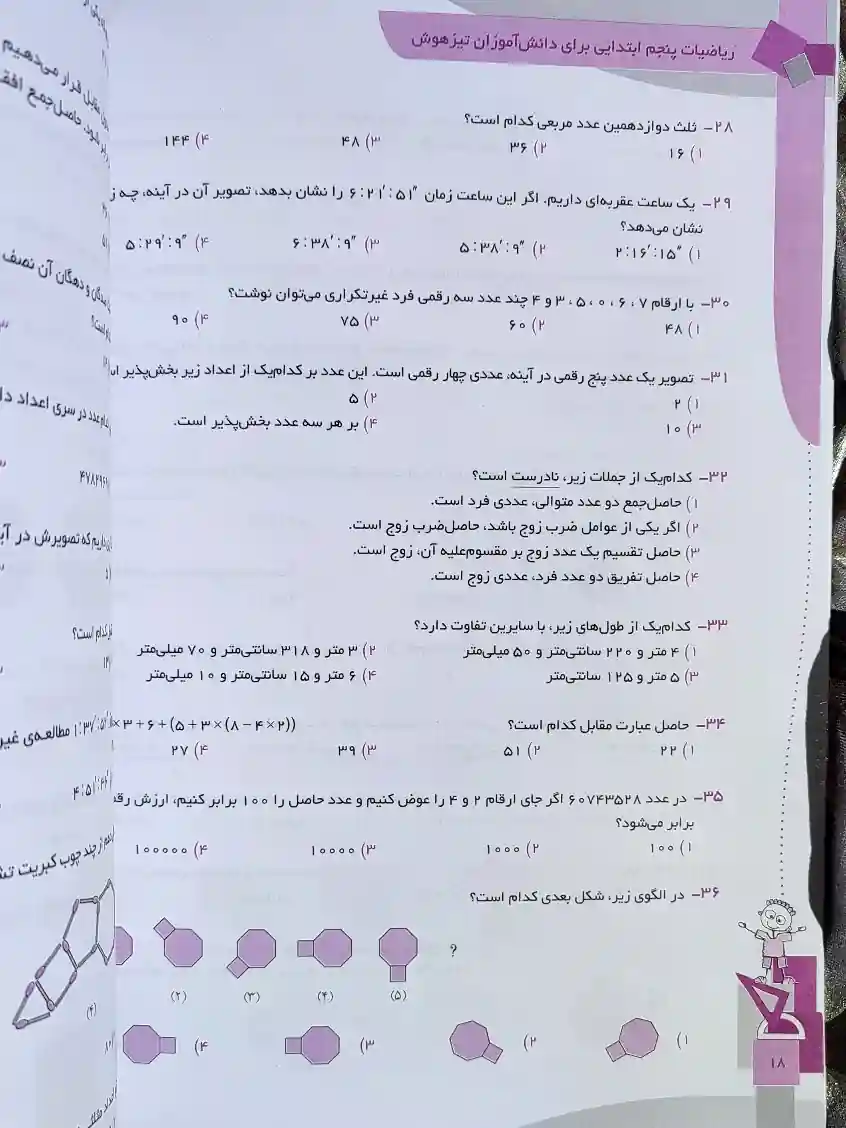 ریاضیات پنجم ابتدایی برای دانش‌آموزان تیزهوش
۲۸– ثلث دوازدهمین عدد مربعی کدام است؟
۱) ۱۶ ۲) ۳۶ ۳) ۴۸ ۴) ۱۴۴
۲۹– یک ساعت عقربه‌ای داریم. اگر این ساعت زمان ۶:۲۱′:۵۱″ را نشان بدهد، تصویر آن در آینه، چه ز
نشان می‌دهد؟
۱) ۲:۱۶′:۱۵″ ۲) ۵:۳۸′:۹″ ۳) ۶:۳۸′:۹″ ۴) ۵:۲۹′:۹″
۳۰– با ارقام ۷، ۶، ۰، ۵، ۳ و ۴ چند عدد سه رقمی فرد غیرتکراری می‌توان نوشت؟
۱) ۴۸ ۲) ۶۰ ۳) ۷۵ ۴) ۹۰
۳۱– تصویر یک عدد پنج رقمی در آینه، عددی چهار رقمی است. این عدد بر کدام‌یک از اعداد زیر بخش‌پذیر ا
۱) ۲ ۲) ۵
۳) ۱۰ ۴) بر هر سه عدد بخش‌پذیر است.
۳۲– کدام‌یک از جملات زیر، نادرست است؟
۱) حاصل‌جمع دو عدد متوالی، عددی فرد است.
۲) اگر یکی از عوامل ضرب زوج باشد، حاصل‌ضرب زوج است.
۳) حاصل تقسیم یک عدد زوج بر مقسوم‌علیه آن، زوج است.
۴) حاصل تفریق دو عدد فرد، عددی زوج است.
۳۳– کدام‌یک از طول‌های زیر، با سایرین تفاوت دارد؟
۱) ۴ متر و ۲۲۰ سانتی‌متر و ۵۰ میلی‌متر ۲) ۳ متر و ۳۱۸ سانتی‌متر و ۷۰ میلی‌متر
۳) ۵ متر و ۱۲۵ سانتی‌متر ۴) ۶ متر و ۱۵ سانتی‌متر و ۱۰ میلی‌متر
۳۴– حاصل عبارت مقابل کدام است؟ ×۳+۶+(۵+۳×(۸–۴×۲))
۱) ۲۲ ۲) ۵۱ ۳) ۳۹ ۴) ۲۷
۳۵– در عدد ۶۰۷۴۳۵۲۸ اگر جای ارقام ۲ و ۴ را عوض کنیم و عدد حاصل را ۱۰۰ برابر کنیم، ارزش رق
برابر می‌شود؟
۱) ۱۰۰ ۲) ۱۰۰۰ ۳) ۱۰۰۰۰ ۴) ۱۰۰۰۰۰
۳۶– در الگوی زیر، شکل بعدی کدام است؟
?
(۲) (۳) (۴) (۵)
۱) ۲) ۳) ۴)
۱۸
قرار می‌دهیم
حاصل‌جمع افق
و دهگان آن نصف
عدد در سری اعداد
که تصویرش در
کدام است؟
مطالعه‌ی غیر
از چند چوب کبریت
(۴)